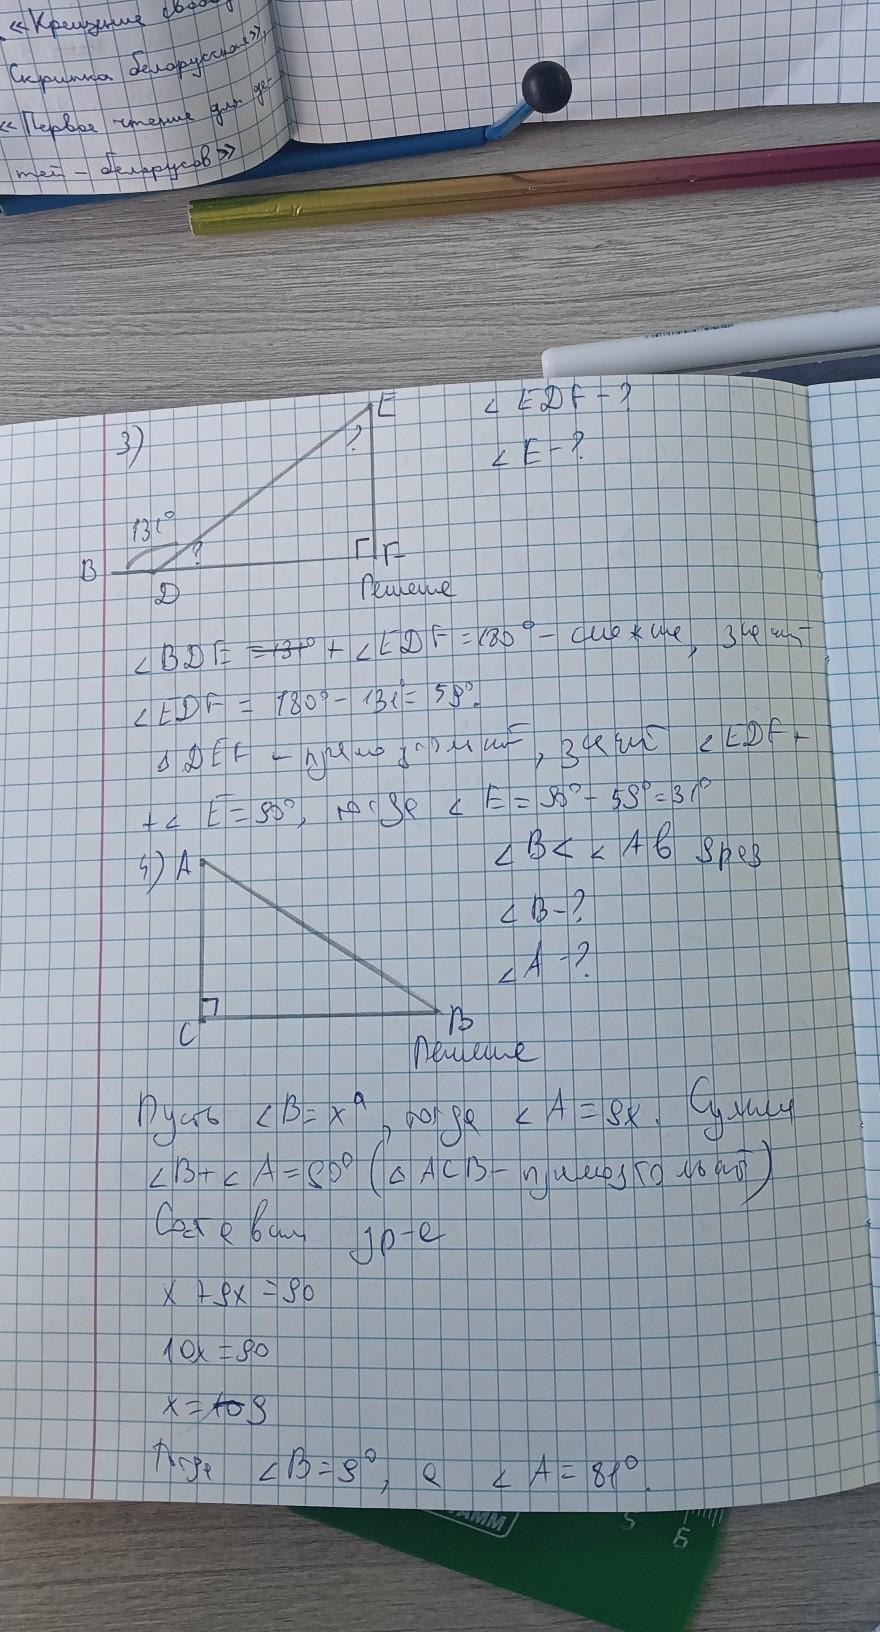 «Крещение свобод
Скрипка белорусская»,
«Первое чтение для де-
тей - белорусов»
3)
E
∠EDF - ?
?
∠E - ?
131°
?
B
D
F
Решение
∠BDE = 131° + ∠EDF = 180° - смежные, значит
∠EDF = 180° - 131° = 59°.
△DEF - прямоугольный, значит ∠EDF +
+ ∠E = 90°, тогда ∠E = 90° - 59° = 31°
4)
A
∠B < ∠A в 9 раз
∠B - ?
∠A - ?
C
B
Решение
Пусть ∠B = x°, тогда ∠A = 9x. Сумма
∠B + ∠A = 90° (△ACB - прямоугольный)
Составим ур-е
x + 9x = 90
10x = 90
x = 10 9
Тогда ∠B = 9°, а ∠A = 81°.
5
6